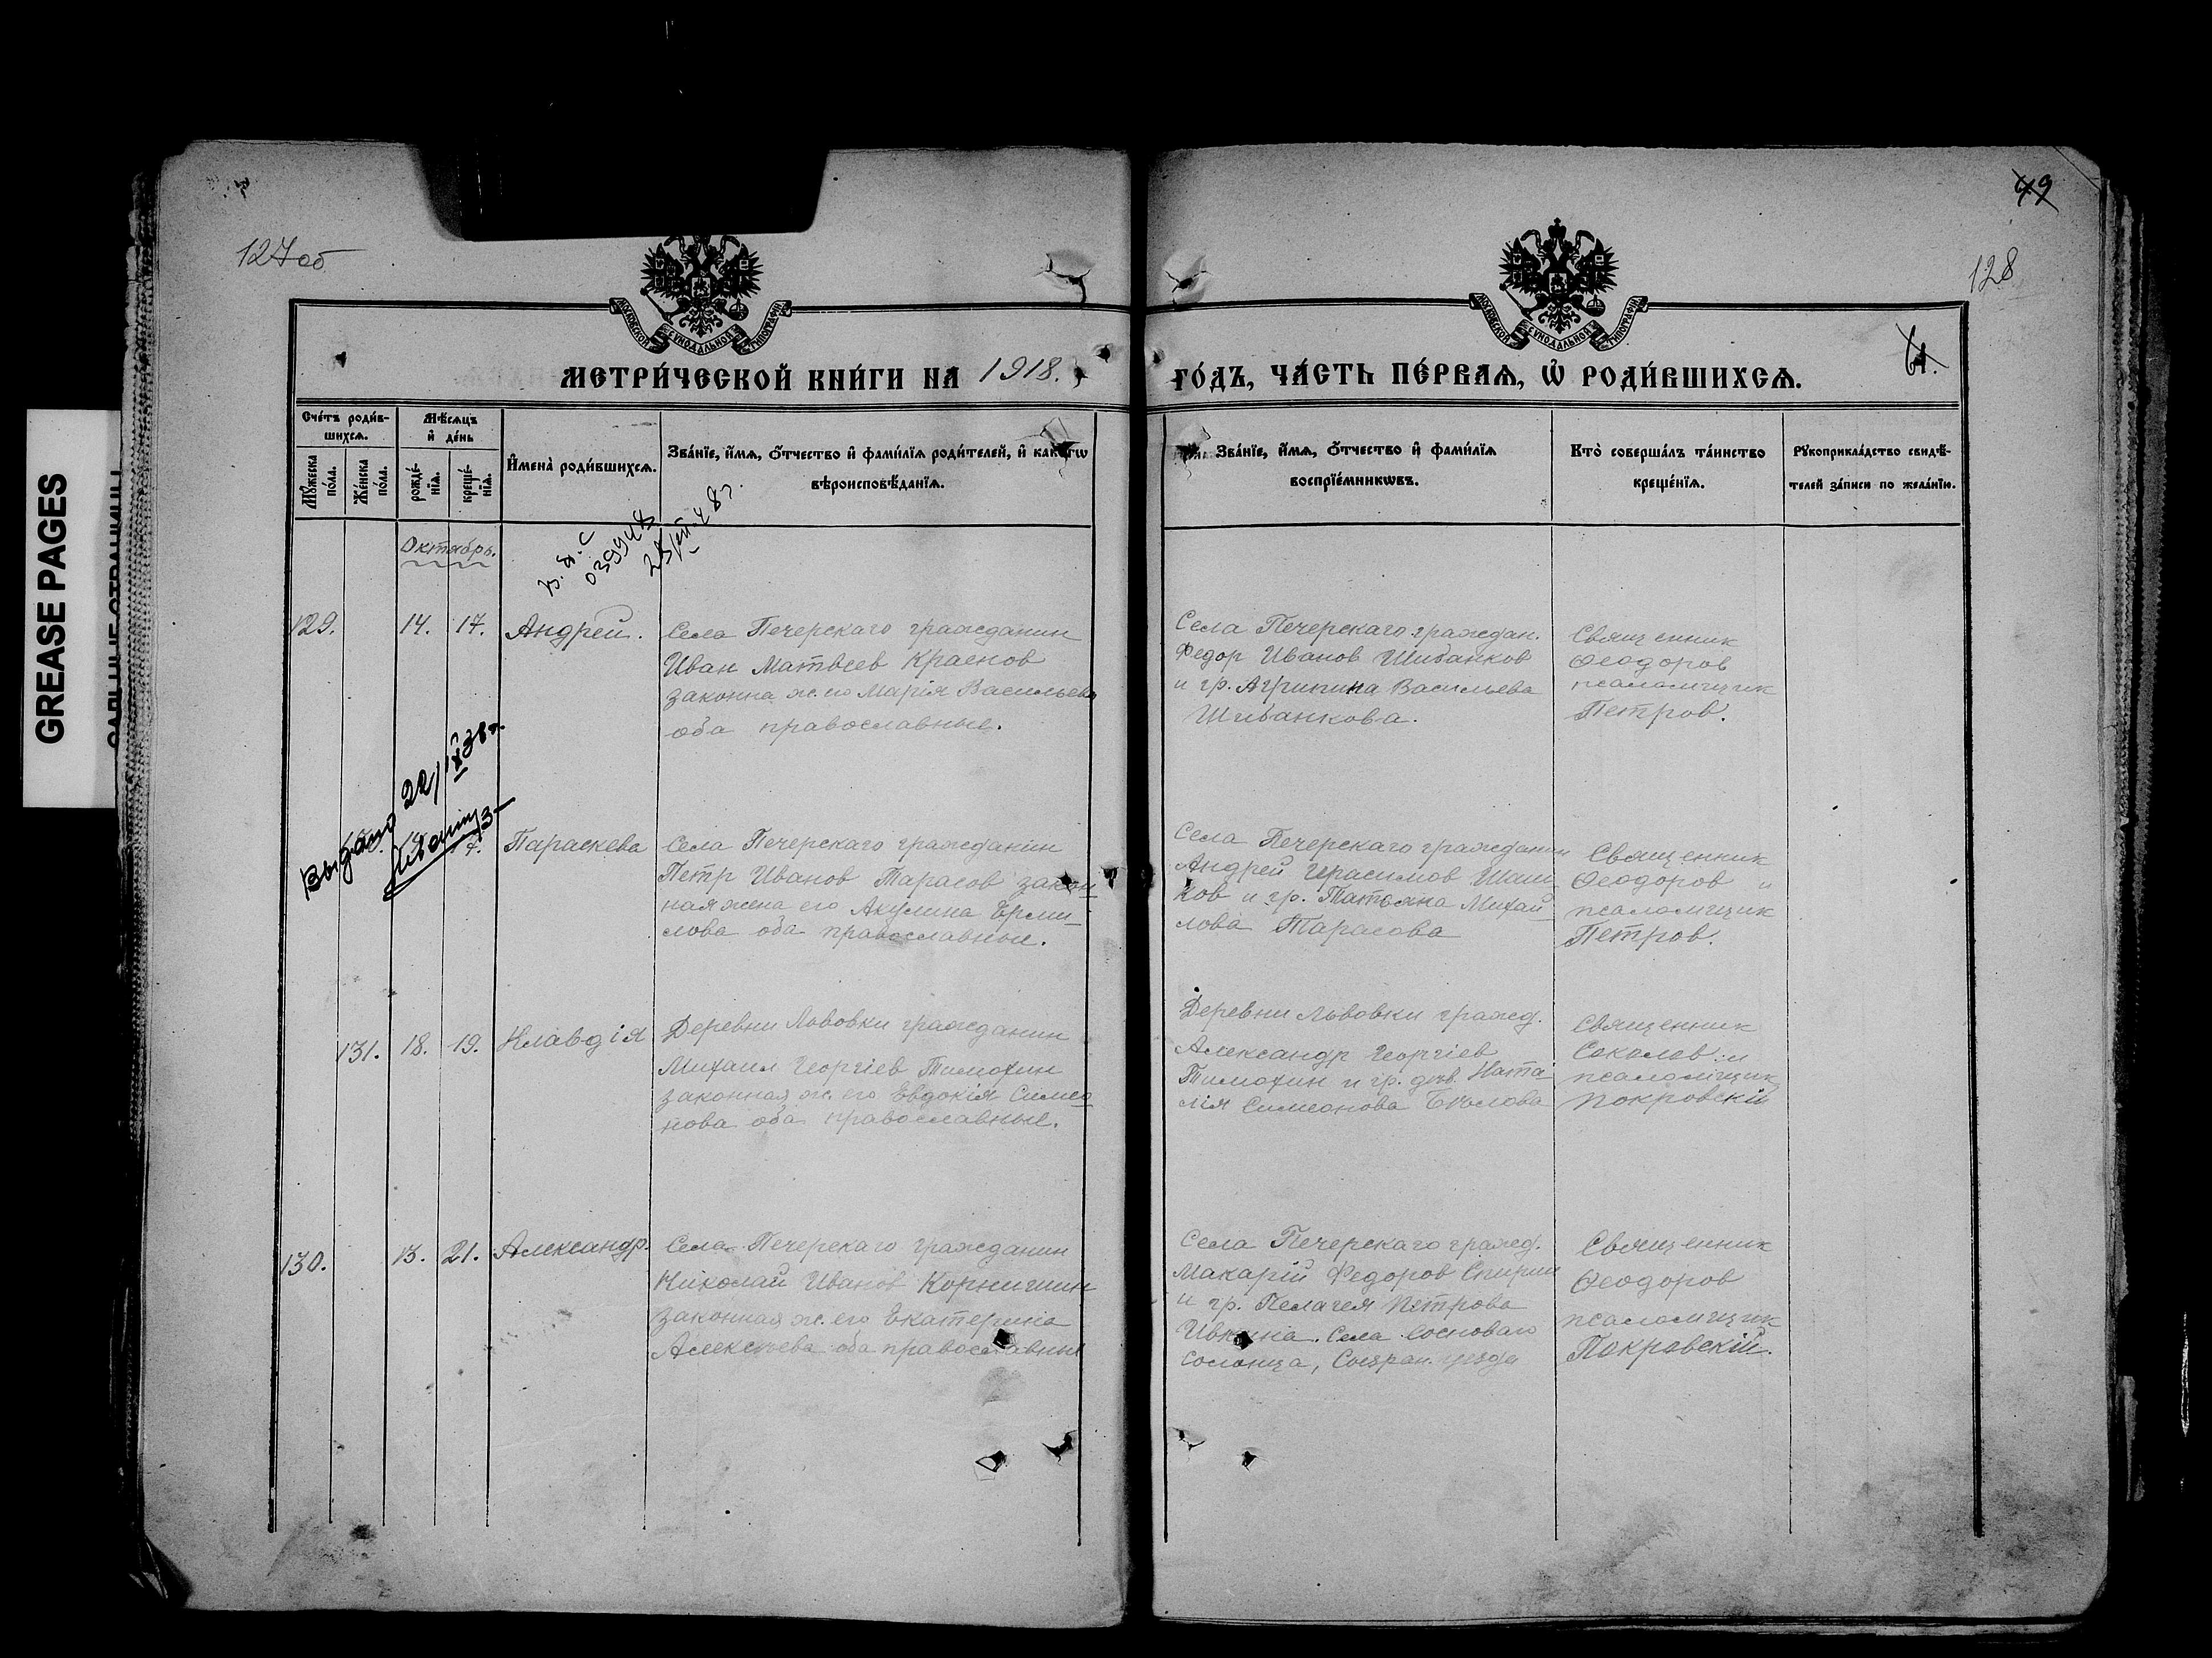 GREASE PAGES
127 об
49
128
61.
МОСКОВСКОЙ СѴНОДАЛЬНОЙ ТИПОГРАФІИ
МОСКОВСКОЙ СѴНОДАЛЬНОЙ ТИПОГРАФІИ
МЕТРИ́ЧЕСКОЙ КНИ́ГИ НА 1918.
ГО́ДЪ, ЧА́СТЬ ПЕ́РВАѦ, Ѽ РОДИ́ВШИХСѦ.
Сче́тъ роди́в-
шихсѧ.
Мꙋ́жеска
по́ла.
Же́нска
по́ла.
Мѣ́сѧцъ
и҆ де́нь
рожде́-
нїѧ.
креще́-
нїѧ.
И҆мена̀ роди́вшихсѧ.
Зва́нїе, и҆́мѧ, ѻ҆́тчество и҆ фами́лїѧ роди́телей, и҆ како́гѡ
вѣроисповѣ́данїѧ.
Зва́нїе, и҆́мѧ, ѻ҆́тчество и҆ фами́лїѧ
воспрїе́мникѡвъ.
Кто̀ соверша́лъ та́инство
креще́нїѧ.
Рꙋкоприкла́дство свидѣ́-
телей за́писи по жела́нїю.
Октябрь.
129. 14. 17. Андрей.
Села Печерскаго гражданин
Иван Матвеев Краснов
законна ж. его Марія Васильева
оба православные.
Села Печерскаго граждан.
Федор Иванов Шибанков
и гр. Агрипина Васильева
Шибанкова.
Священник
Феодоров
псаломщик
Петров.
Выдано 22/IX 38 г.
Параскева
Села Печерскаго гражданин
Петр Иванов Тарасов закон-
ная жена его Акулина Ерми-
лова оба православные.
Села Печерскаго гражданин
Андрей Герасимов Шаш-
ков и гр. Татьяна Михай-
лова Тарасова
Священник
Феодоров и
псаломщик
Петров.
131. 18. 19. Клавдія
Деревни Львовки гражданин
Михаил Георгіев Тимохин
законная ж. его Евдокія Симео-
нова оба православные.
Деревни Львовки гражд.
Александр Георгіев
Тимохин и гр. дев. Ната-
лія Симеонова Белова
Священник
Соколов и
псаломщик
Покровскій
130. 13. 21. Александр.
Села Печерскаго гражданин
Николай Иванов Корнишин
законная ж. его Екатерина
Алексеева оба православные
Села Печерскаго гражд.
Макарій Федоров Спирин
и гр. Пелагея Петрова
Ивкина. Села Сосноваго
Солонца, Сызран. уезда
Священник
Феодоров
псаломщик
Покровскій.